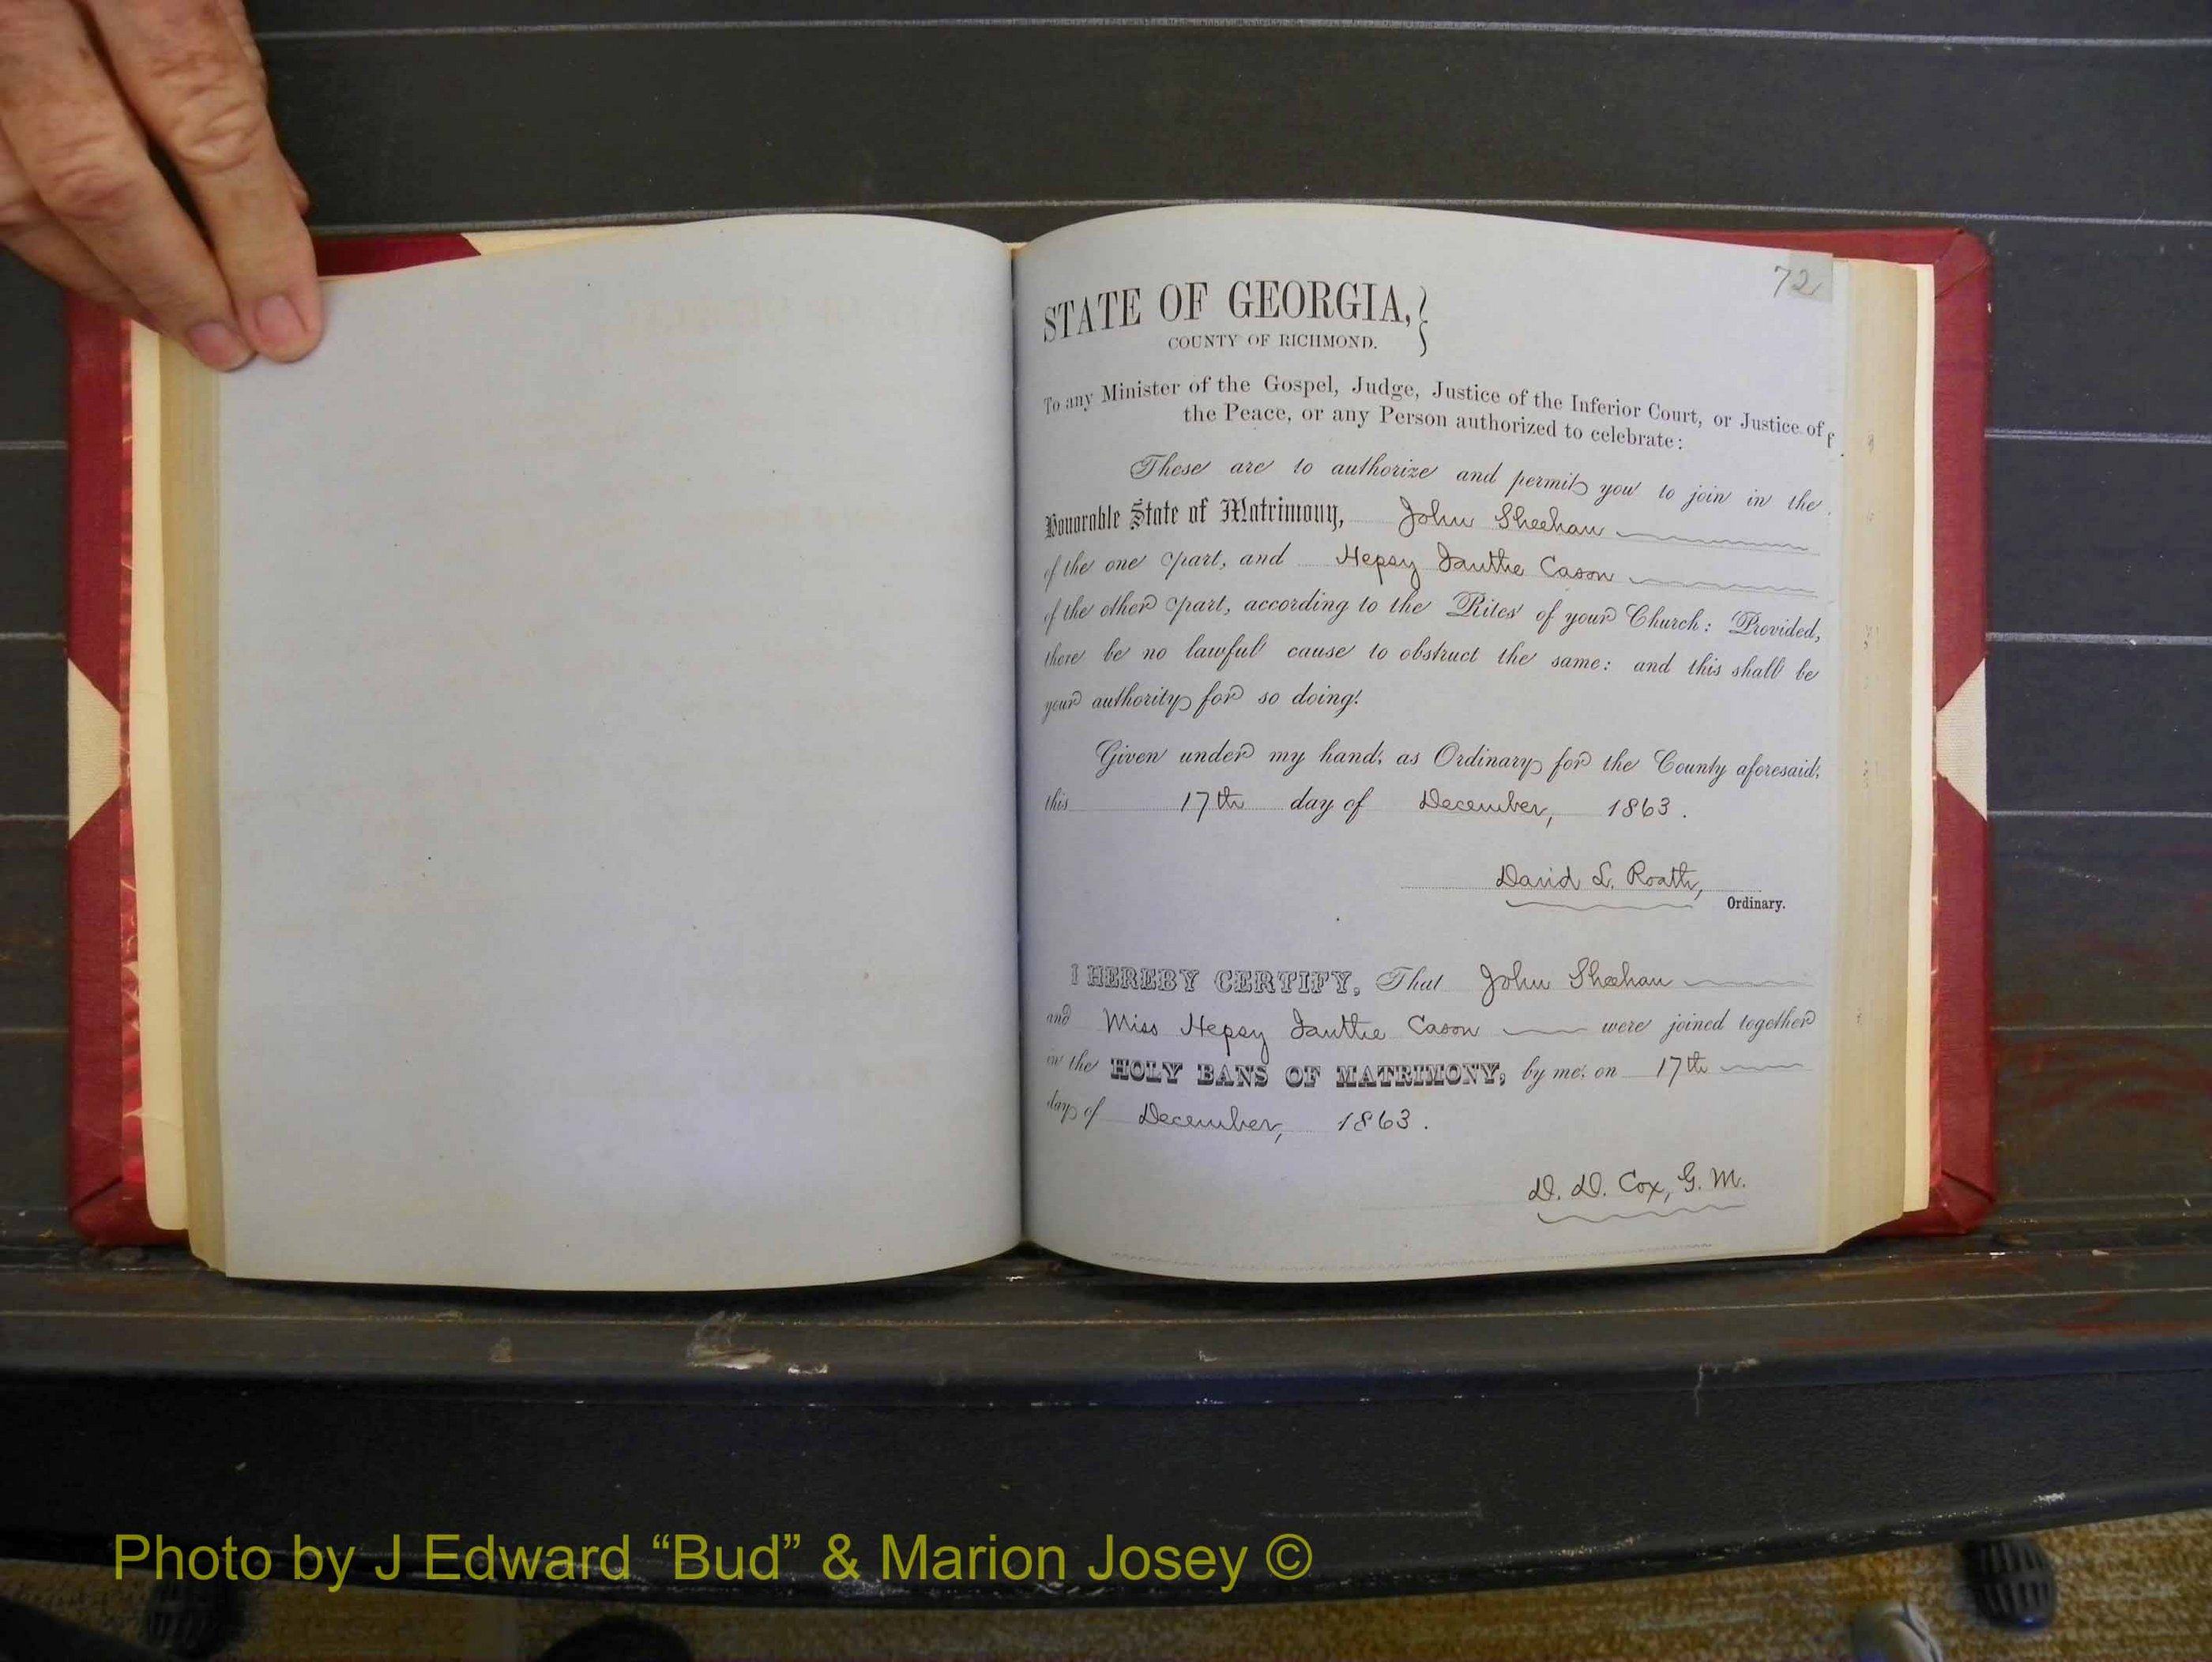 72
STATE OF GEORGIA,
COUNTY OF RICHMOND.
To any Minister of the Gospel, Judge, Justice of the Inferior Court, or Justice of
the Peace, or any Person authorized to celebrate:
These are to authorize and permit you to join in the
Honorable State of Matrimony, John Sheehan
of the one part, and Hepsy Ianthe Cason
of the other part, according to the Rites of your Church: Provided,
there be no lawful cause to obstruct the same: and this shall be
your authority for so doing.
Given under my hand, as Ordinary for the County aforesaid,
this 17th day of December, 1863.
David L. Roath,
Ordinary.
I HEREBY CERTIFY, That John Sheehan
and Miss Hepsy Ianthe Cason were joined together
in the HOLY BANS OF MATRIMONY, by me, on 17th
day of December, 1863.
D. D. Cox, G. M.
Photo by J Edward “Bud” & Marion Josey ©